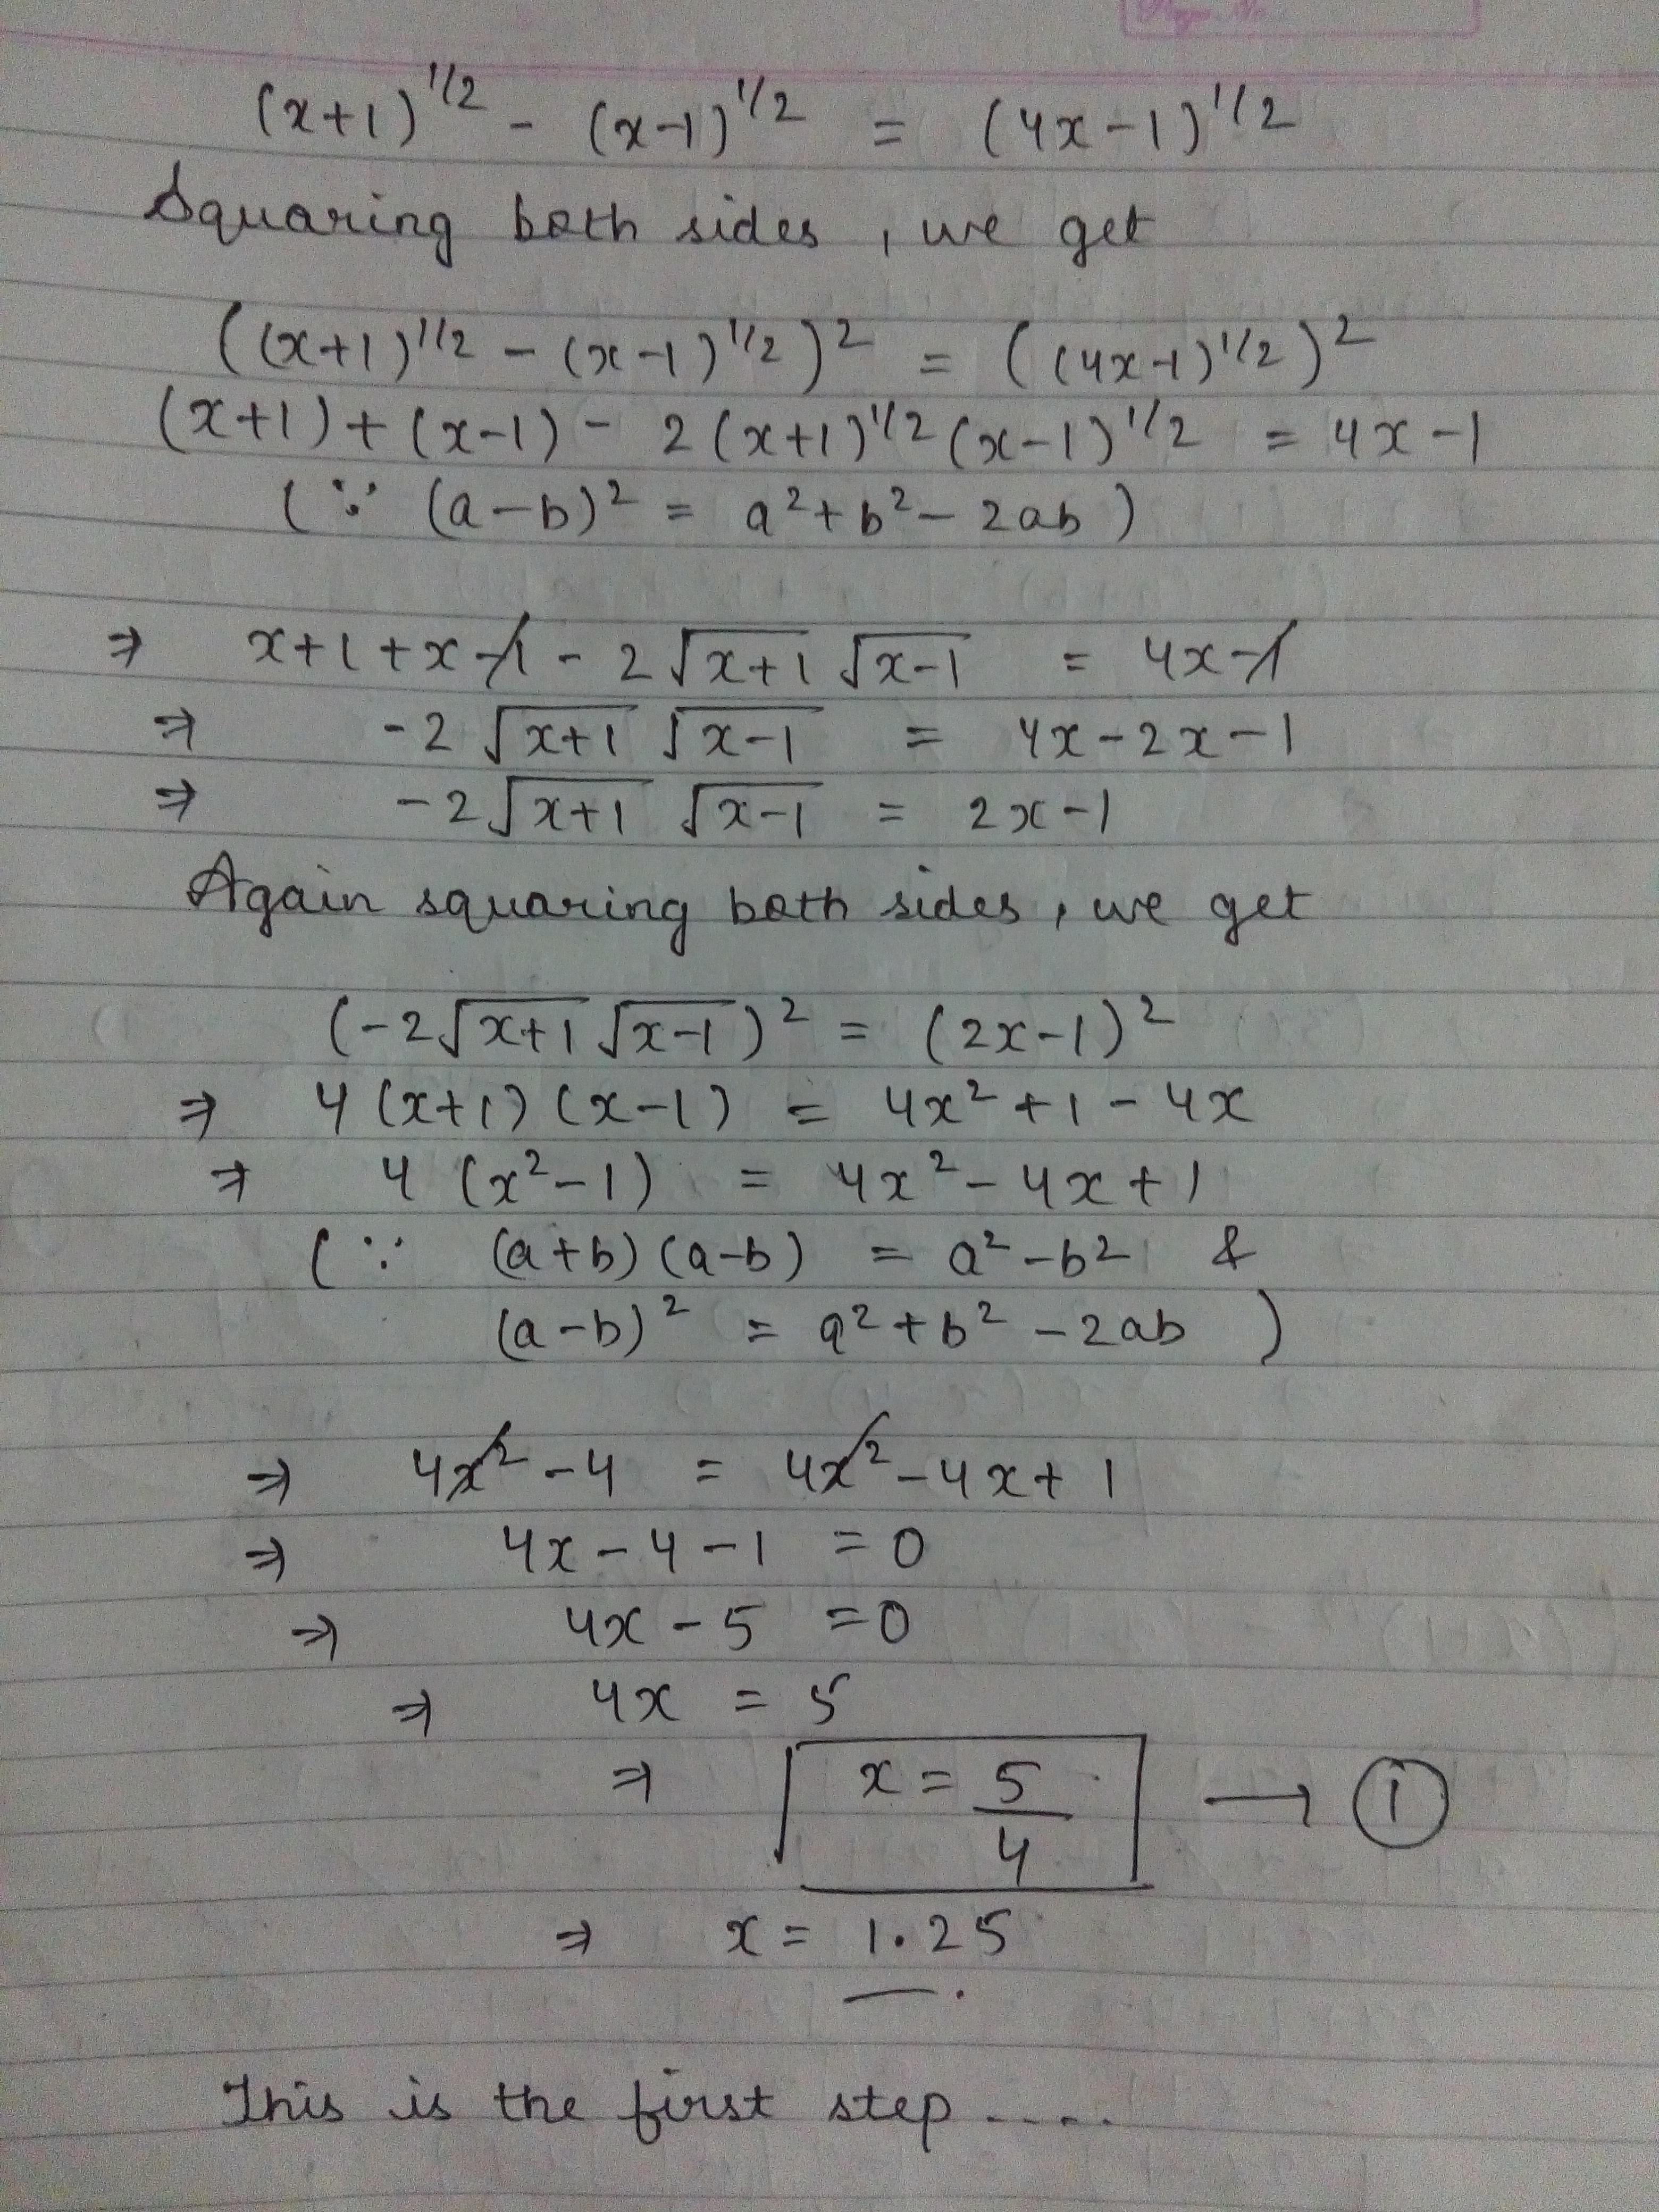 Page No
(x+1)^1/2 - (x-1)^1/2 = (4x-1)^1/2
Squaring both sides, we get
((x+1)^1/2 - (x-1)^1/2)^2 = ((4x-1)^1/2)^2
(x+1)+(x-1)- 2(x+1)^1/2(x-1)^1/2 = 4x-1
(∵ (a-b)² = a²+b²-2ab)
⇒ x+1+x-1-2√(x+1) √(x-1) = 4x-1
⇒ -2√(x+1) √(x-1) = 4x-2x-1
⇒ -2√(x+1) √(x-1) = 2x-1
Again squaring both sides, we get
(-2√(x+1) √(x-1))² = (2x-1)²
⇒ 4(x+1)(x-1) = 4x²+1-4x
⇒ 4(x²-1) = 4x²-4x+1
(∵ (a+b)(a-b) = a²-b² &
(a-b)² = a²+b²-2ab)
⇒ 4x²-4 = 4x²-4x+1
⇒ 4x-4-1 =0
⇒ 4x-5 =0
⇒ 4x = 5
⇒ x = 5/4 → ①
⇒ x = 1.25
This is the first step....